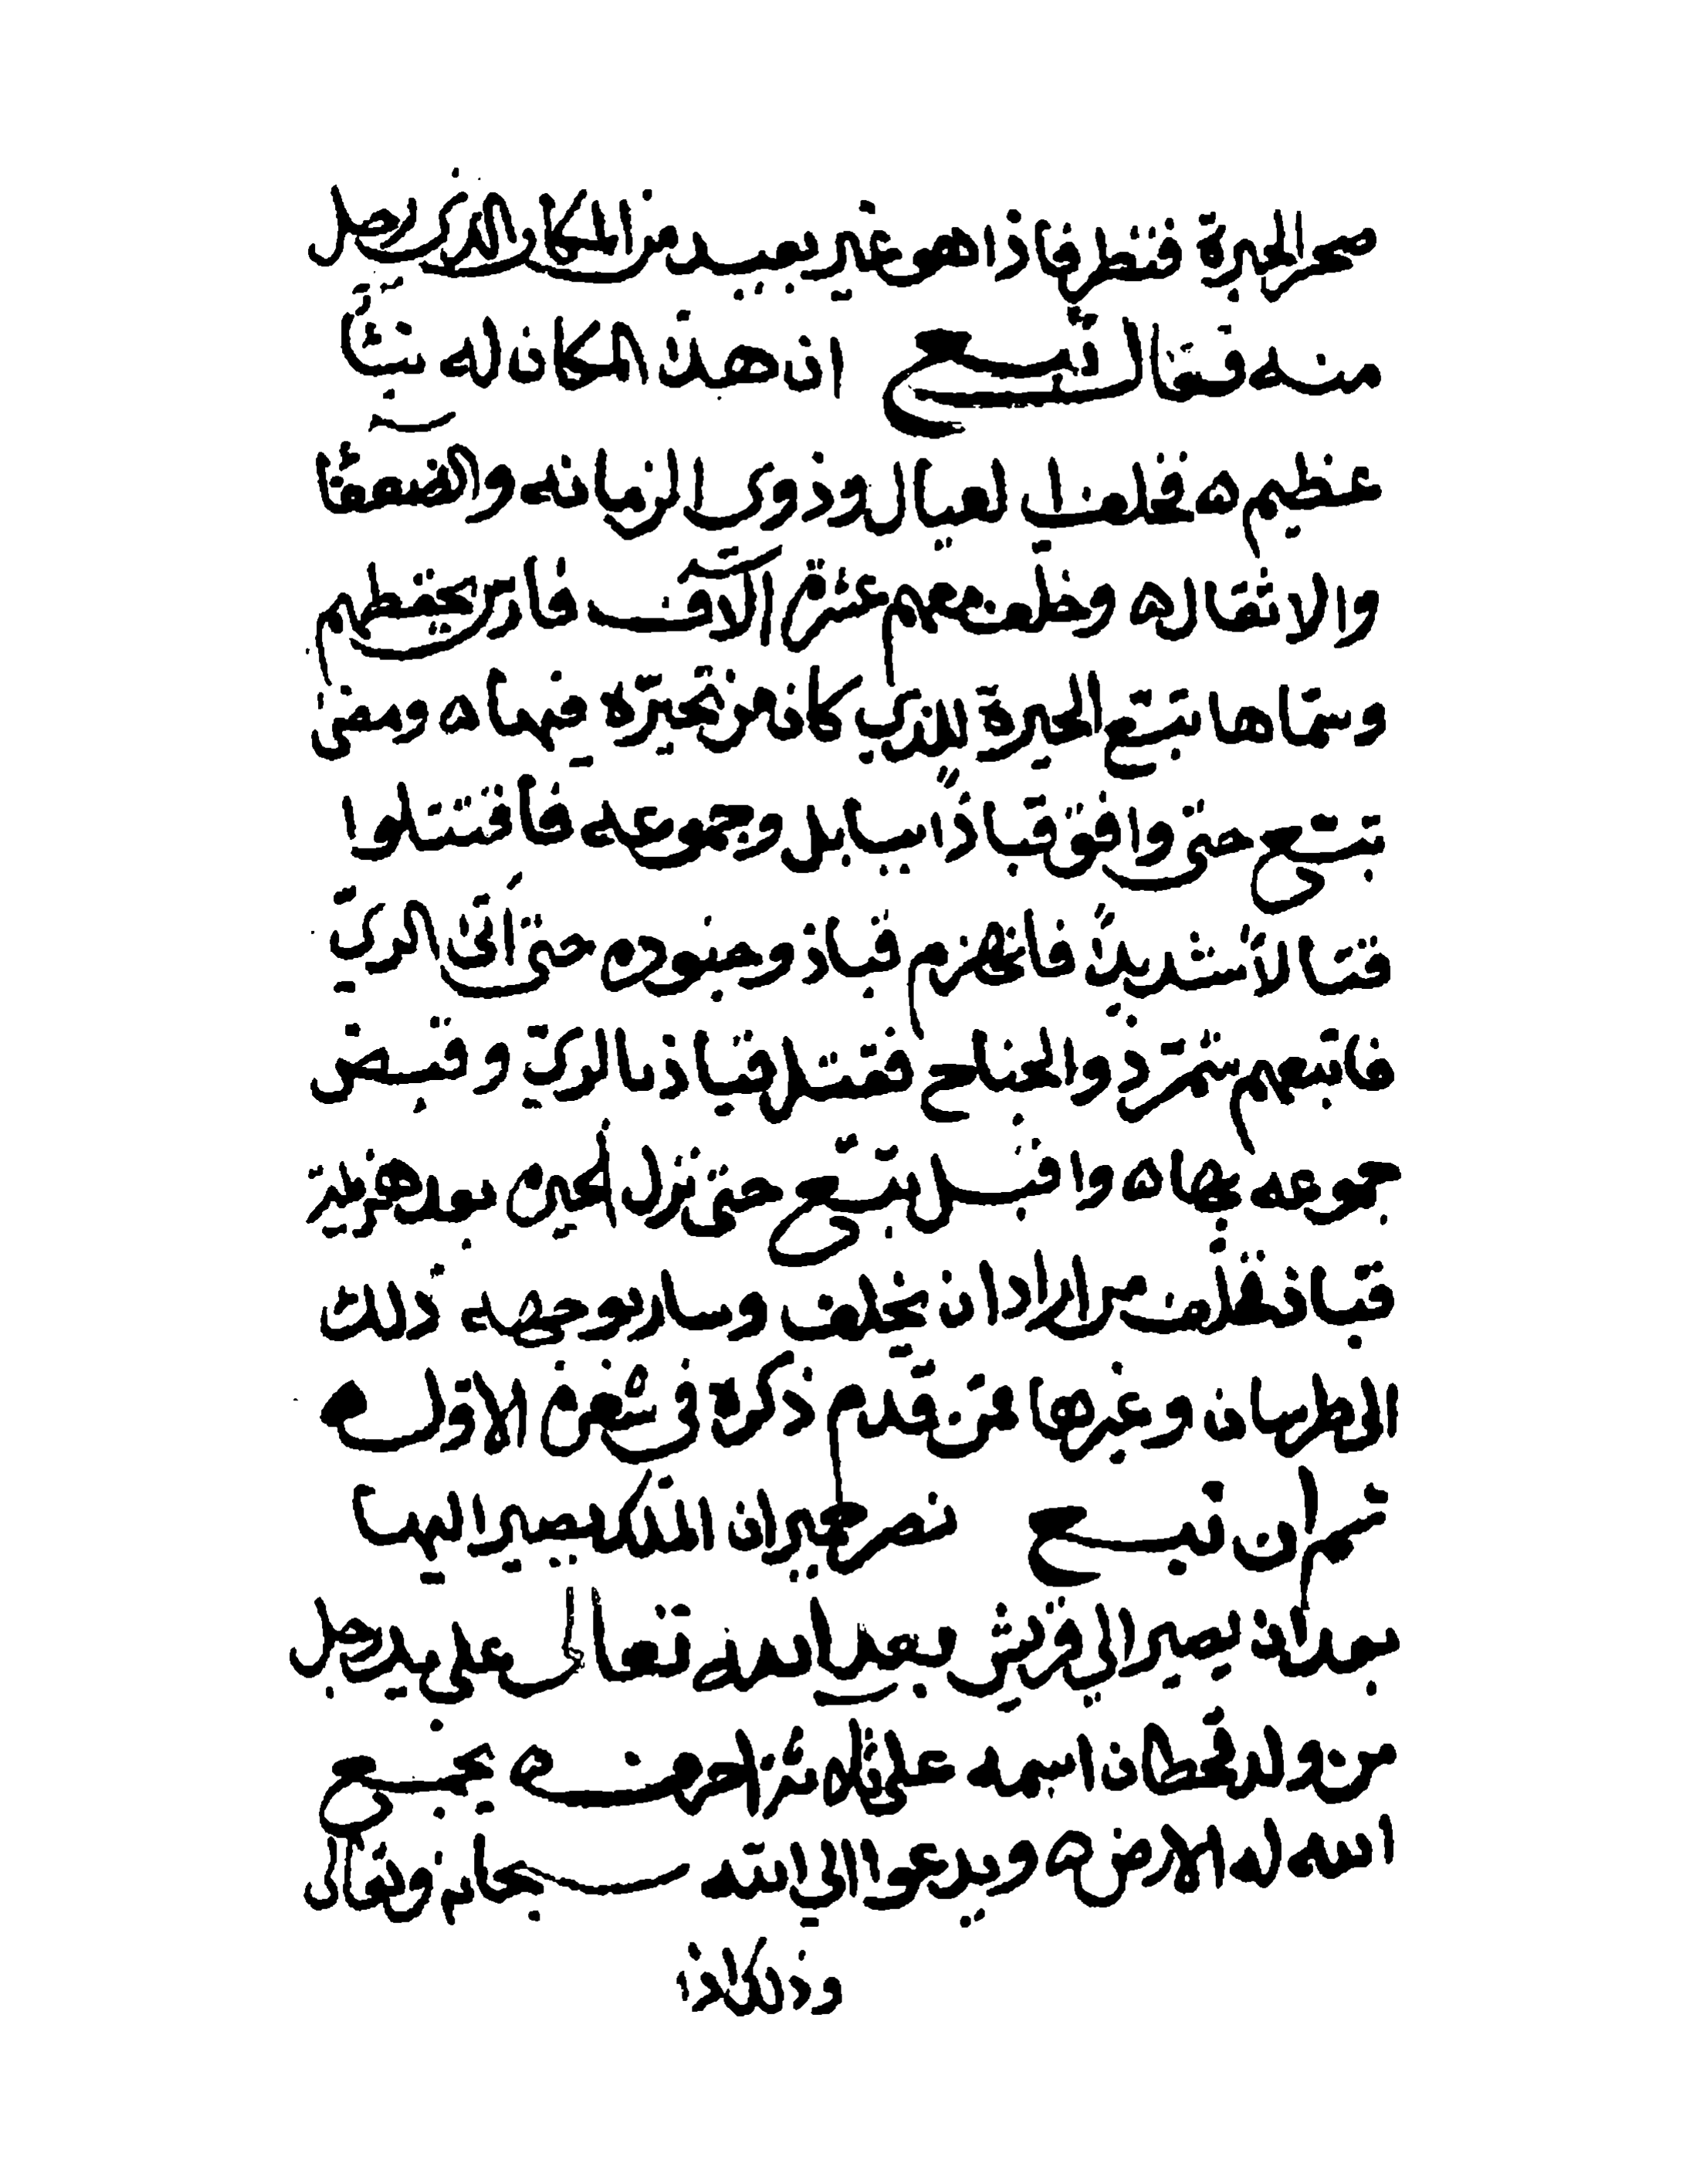 صحر الحيرة فنظر فاذا هو غير بعيد من المكان الذي رحل
منه فقال تبع ان هذا المكان له نبأ
عظيم ه فخلف العيال وذوي الزمانه والضعفا
والاثقال ه وخلف معهم عشرة آلاف فارس يحفظهم
وسماها تبع الحيرة للذي كان من تحيره فيها ه ومضى
تبع حتى وافق قباذاً ببابل وجموعه فاقتتلوا
قتالاً شديداً فانهزم قباذ وجنوده حتى أتى الريّ
فاتبعهم شمّر ذو الجناح فقتل قباذ بالريّ وقبض
جموعه بها ه واقبل تبع حتى نزل الحيرة بعد هزيمة
قباذ فخلّف من اراد ان يخلف وسار بوجهه ذلك
الى وغيرها ممن قدم ذكره في شعره الاوّل ه
ثم ان تبع ان الملك يصير اليها
بعد ان يصير الي قريش الله تعالى على يد رجل
من ولد قحطان اسمه على ثلاثة احرف ه يجمع
الله له الارض ه ويدعوا الي الله سبحانه وتعالى
وذلك اذا